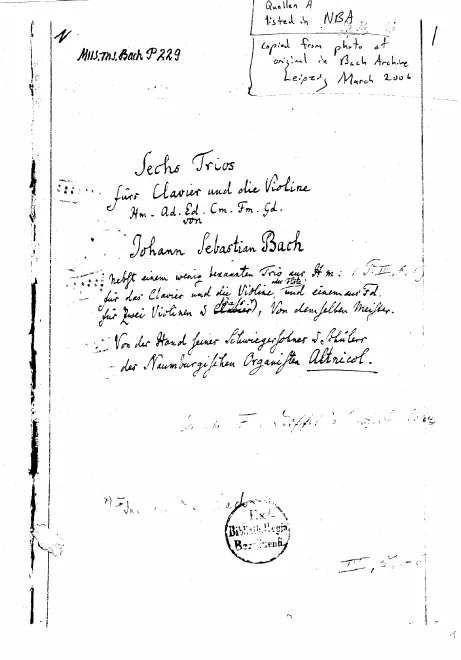 Quellen A
listed in NBA
copied from photo of
original in Bach Archive
Leipzig March 2006
N
Mus.ms.Bach P 229
1
Sechs Trios
fürs Clavier und die Violine
Hm. Ad. Ed. Cm. Fm. Gd.
von
Johann Sebastian Bach
Nebst einem wenig bekannten Trio aus Hm:
für das Clavier und die Violine, und einem aus Fd.
für zwei Violinen u. Clavier), Von demselben Meister.
Von der Hand seines Schwiegersohnes u. Schülers
des Naumburgischen Organisten Altnicol.
Ex
Biblioth. Regia
Berolinensi.